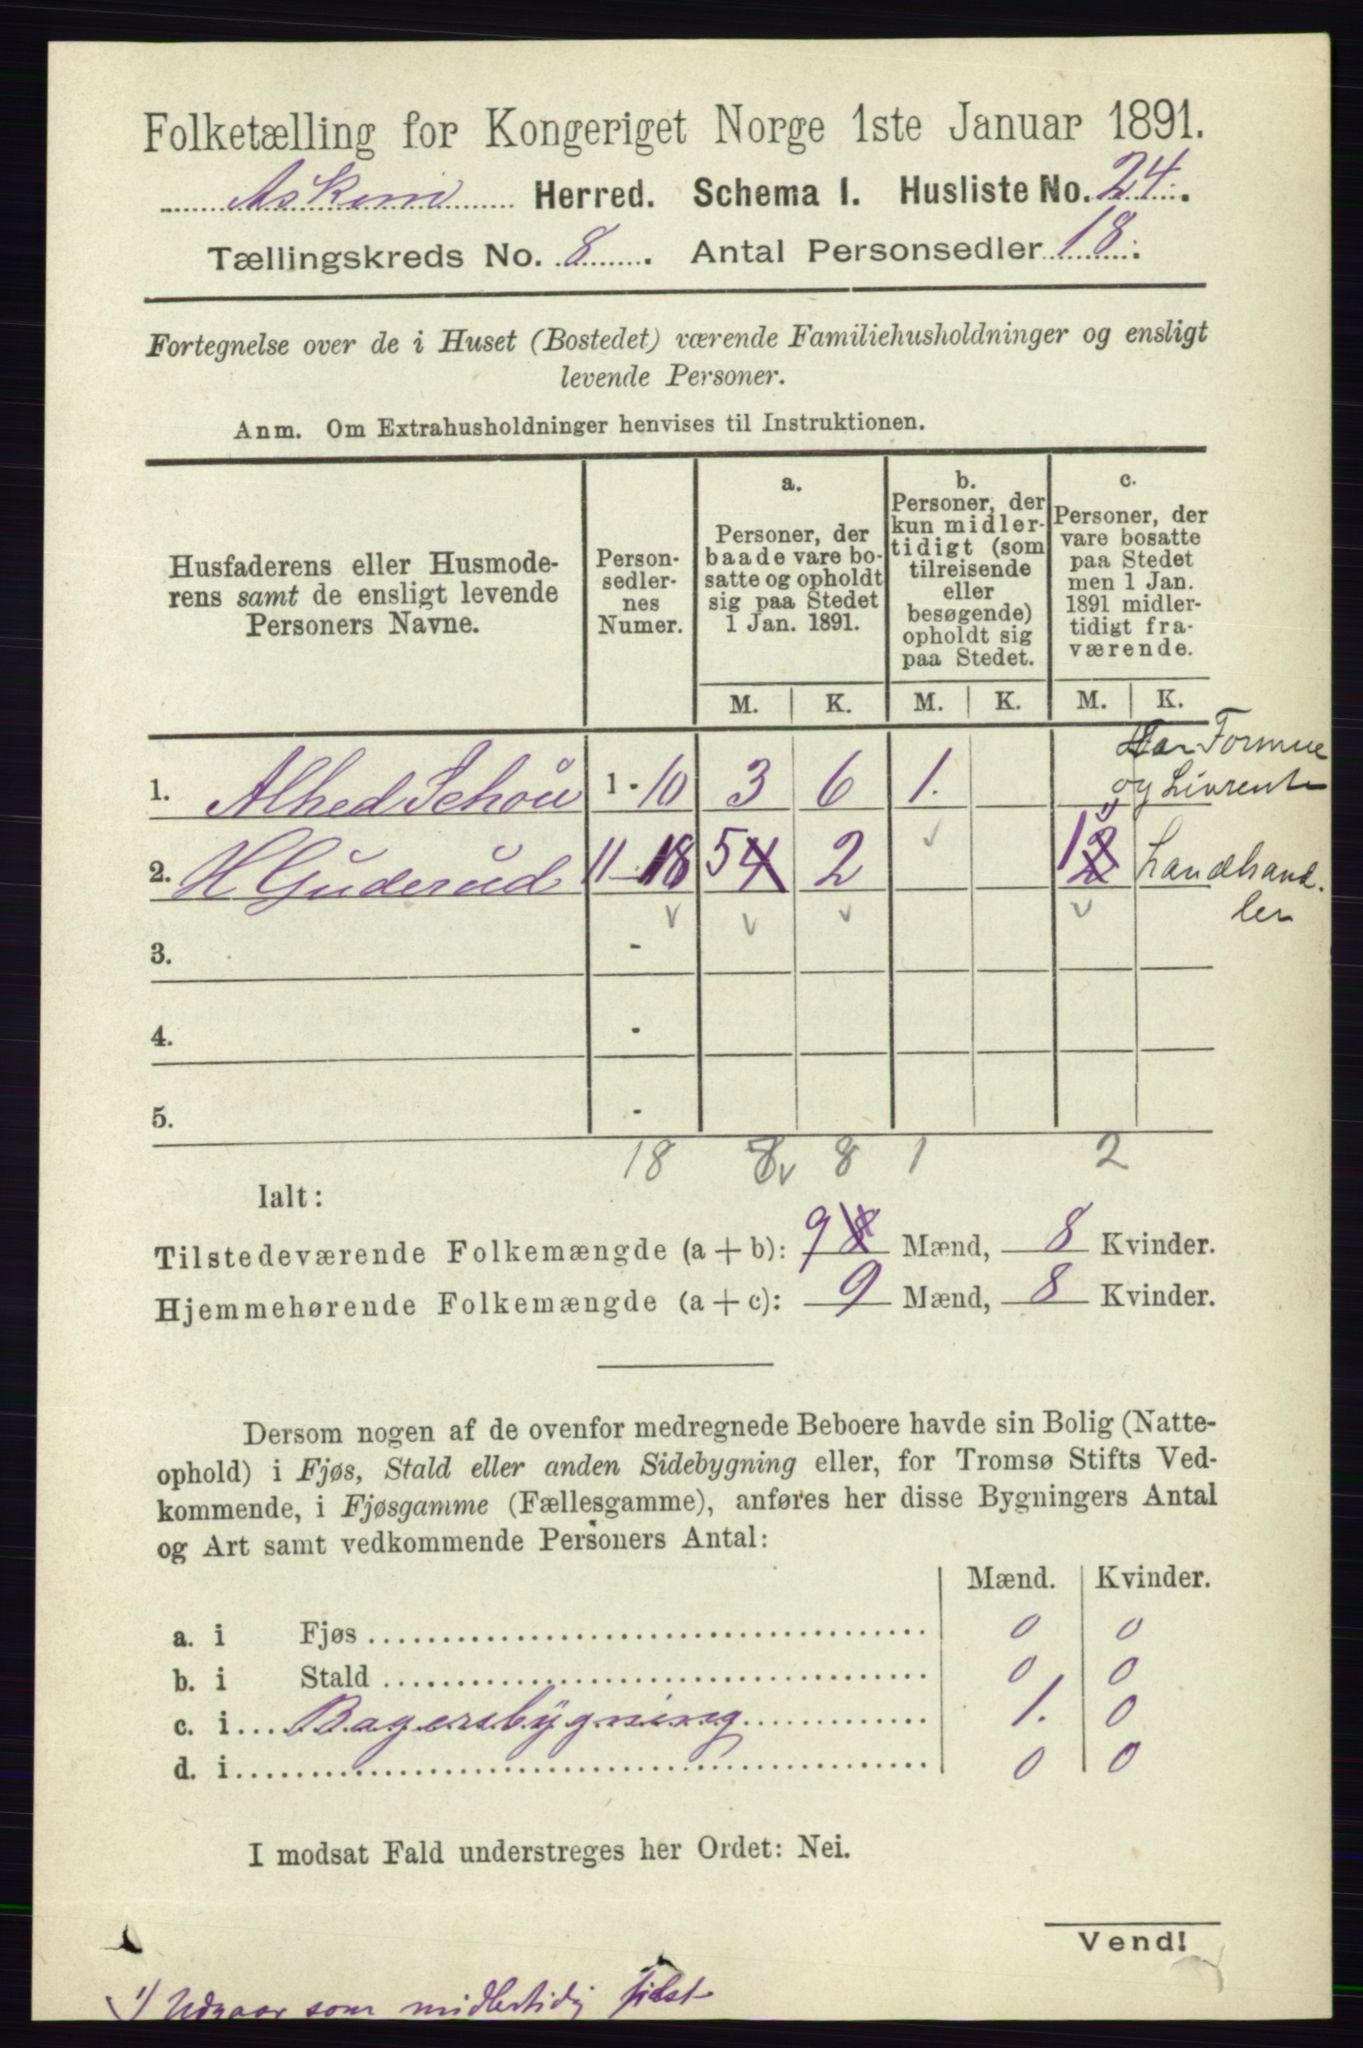 Folketælling for Kongeriget Norge 1ste Januar 1891.
Askim Herred. Schema I. Husliste No. 24.
Tællingskreds No. 8. Antal Personsedler 18.
Fortegnelse over de i Huset (Bostedet) værende Familiehusholdninger og ensligt
levende Personer.
Anm. Om Extrahusholdninger henvises til Instruktionen.
Husfaderens eller Husmode-
rens samt de ensligt levende
Personers Navne.
Person-
sedler-
nes
Numer.
a.
Personer, der
baade vare bo-
satte og opholdt
sig paa Stedet
1 Jan. 1891.
b.
Personer, der
kun midler-
tidigt (som
tilreisende
eller
besøgende)
opholdt sig
paa Stedet.
c.
Personer, der
vare bosatte
paa Stedet
men 1 Jan.
1891 midler-
tidigt fra-
værende.
M. K. M. K. M. K.
1. Alhed Schou 1 - 10 3 6 1. Har Formue
og Livrente
2. H Guderud 11-18 5 4 2 1 2 Landhand-
ler
3. -
4. -
5. -
18 8 8 1 2
Ialt:
Tilstedeværende Folkemængde (a + b): 9 8 Mænd, 8 Kvinder.
Hjemmehørende Folkemængde (a + c): 9 Mænd, 8 Kvinder.
Dersom nogen af de ovenfor medregnede Beboere havde sin Bolig (Natte-
ophold) i Fjøs, Stald eller anden Sidebygning eller, for Tromsø Stifts Ved-
kommende, i Fjøsgamme (Fællesgamme), anføres her disse Bygningers Antal
og Art samt vedkommende Personers Antal:
Mænd. Kvinder.
a. i Fjøs 0 0
b. i Stald 0 0
c. i Bagersbygning 1. 0
d. i 0 0
I modsat Fald understreges her Ordet: Nei.
Vend!
1) Udgaar som midlertidig tilst